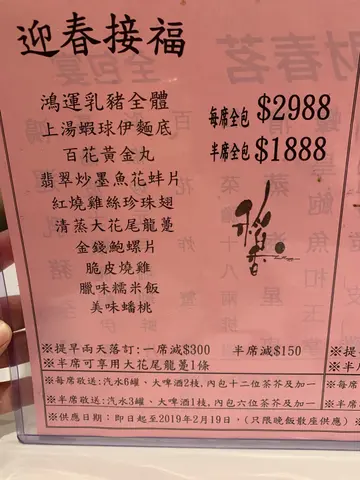 迎春接福
鴻運乳豬全體
上湯蝦球伊麵底
百花黃金丸
翡翠炒墨魚花蚌片
紅燒雞絲珍珠翅
清蒸大花尾龍躉
金錢鮑螺片
脆皮燒雞
臘味糯米飯
美味蟠桃
每席全包 $2988
半席全包 $1888
※提早兩天落訂:一席減$300 半席減$150
※半席可享用大花尾龍躉1條
※每席敬送:汽水6罐、大啤酒2枝,內包十二位茶芥及加一
※半席敬送:汽水3罐、大啤酒1枝,內包六位茶芥及加一
※供應日期:即日起至2019年2月19日。(只限晚飯散座供應)